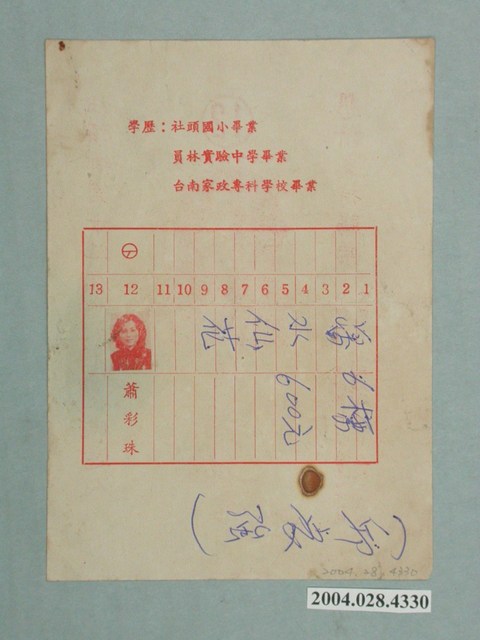 學歷：社頭國小畢業
員林實驗中學畢業
台南家政專科學校畢業
13 12 11 10 9 8 7 6 5 4 3 2 1
蕭彩珠
水仙花
600元
2004.028.4330
2004.028.4330